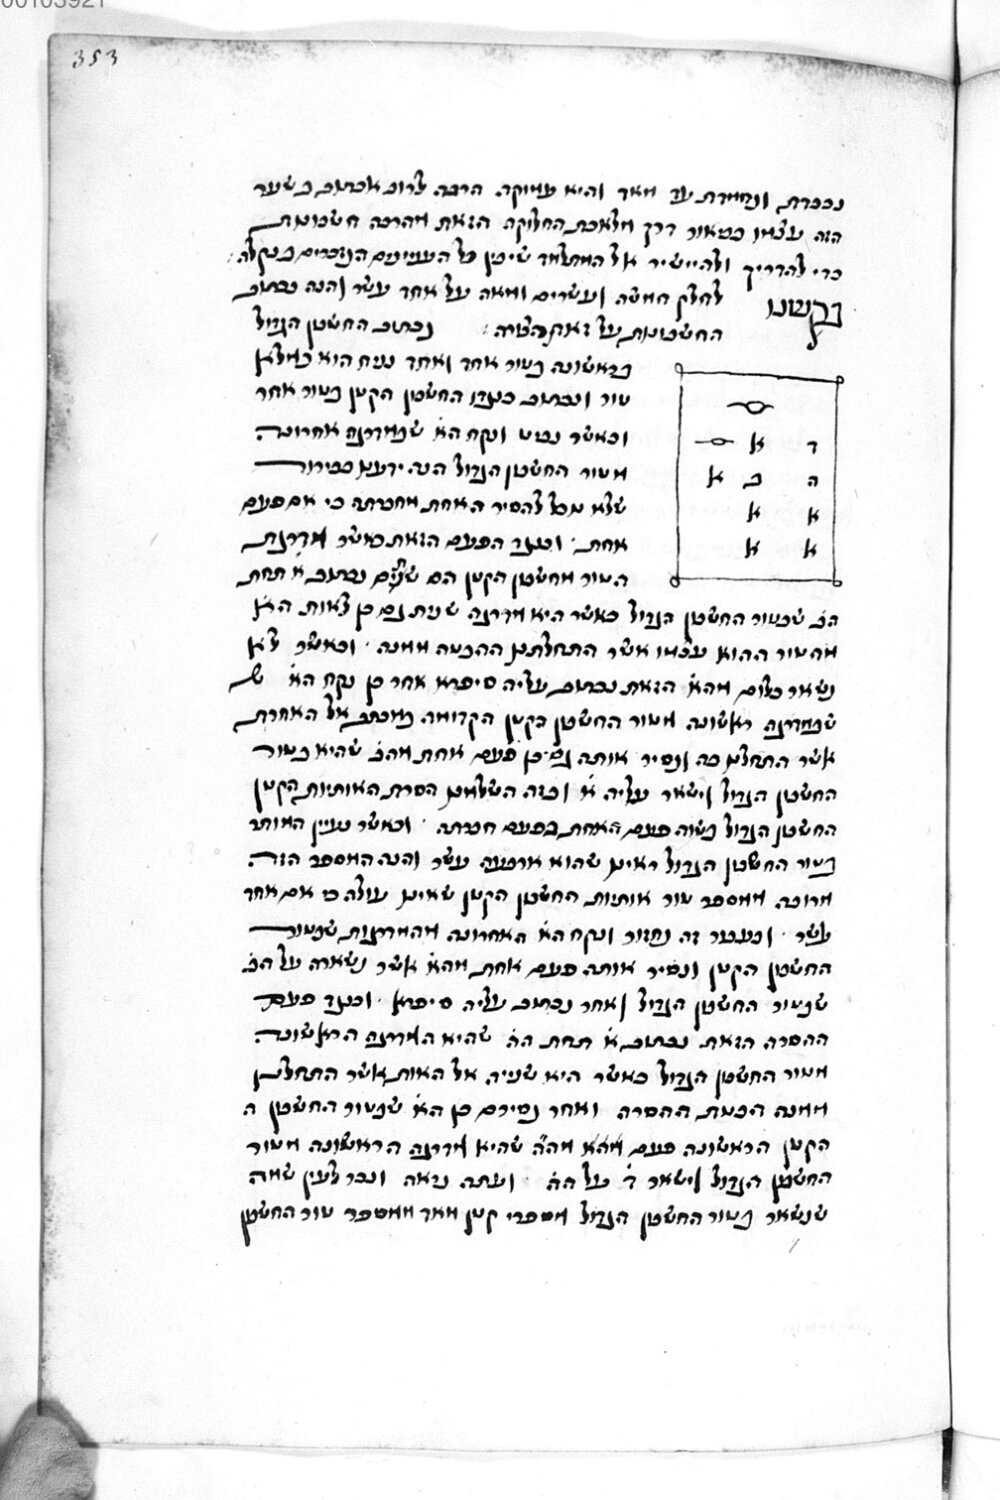 353
נכבדת ונחמדת עד מאד והיא עמוקה הרבה לרוב אכתוב בשער
הזה עצמו במאור דרך מלאכת החלוקה הזאת מהרבה חשבונות
כדי להדריך ולהיישיר אל המתלמד שיבין כל העניינים הנזכרים בנקלה:
בקשנו לחלק חמשה ועשרים ומאה על אחד עשר והנה נכתוב
החשבונות על זאת הצורה: נכתוב החשבון הגדול
בראשונה בטור אחד ואחד נניח הוא במלא
טור ונכתוב כנגדו החשבון הקטן בטור אחר
וכאשר נביט ונקח הא שבמדרגה אחרונה
מטור החשבון הגדול הנה ידענו בבירור
שלא נוכל להסיר האחת מחברתה כי אם פעם
אחת ובעבור הפעם הזאת כאשר מדרגות
הטור מחשבון הקטן הם שנים נכתוב א תחת
הב שבטור החשבון הגדול כאשר היא מדרגה שנית גם כן לאות הא
מהטור ההוא עצמו אשר התחלתנו ההבטה ממנה וכאשר לא
נשאר כלום מהא הזאת נכתוב עליה סיפרא אחר כן נקח הא ש
שבמדרגה ראשונה מטור החשבון הקטן הקדומה במכתב אל האחרת
אשר התחלנו בה ונסיר אותה גם כן פעם אחת מהב שהיא בטור
החשבון הגדול וישאר עליה א ובזה השלמנו הסרת האותיות הקטן
החשבון הגדול בשוה פעם האחת בפעם חברתה וכאשר נעיין המותר
בטור החשבון הגדול ראינו שהוא ארבעה עשר והנה המספר הזה
מרובה ממספר טור אותיות החשבון הקטן שאינו עולה כי אם אחד
עשר ובעבור זה נחזור ונקח הא האחרונה מהמדרגות שבטור
החשבון הקטן ונסיר אותה פעם אחת מהא אשר נשארה על הב
שבטור החשבון הגדול ואחר נכתוב עליה סיפרא ובעד פעם
ההסרה הזאת נכתוב א תחת הה שהיא המדרגה הראשונה
מטור החשבון הגדול כאשר היא שנייה אל האות אשר התחלנו
ממנה הבטת ההסרה ואחר נסירם כן הא שבטור החשבון ה
הקטן הראשונה פעם אחת מהה שהיא מדרגה הראשונה מטור
החשבון הגדול וישאר ד על הה ועתה נראה ונבר לעין שזה
שנשאר בטור החשבון הגדול מספרי קטן מאד ממספר טור החשבון
ד א
ה ב א
א א
א א